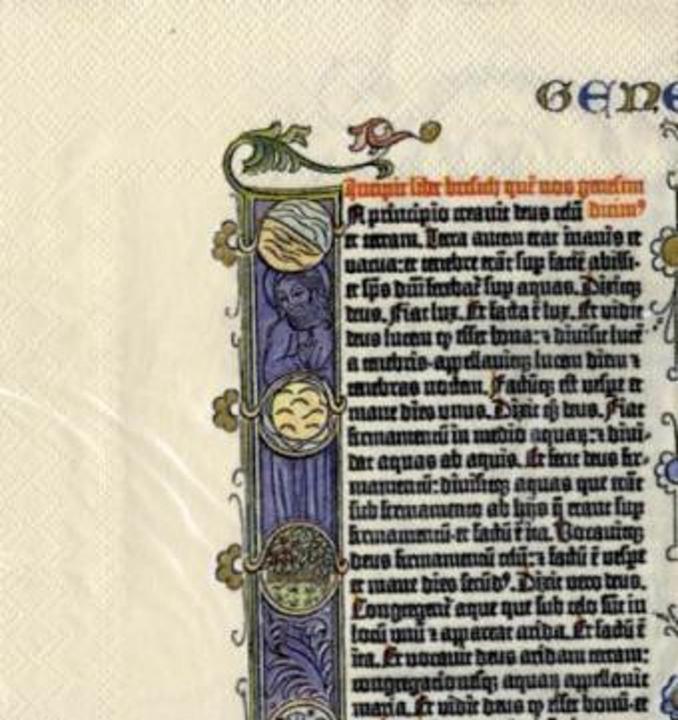 GENE
Incipit liber bresith quē nos genesim
A principio creauit deus celū dicim⁹
et terram. Terra autem erat inanis et
vacua: et tenebre erāt sup faciē abissi:
et sp̄s dn̄i ferebat̄ sup aquas. Dixitq;
deus. Fiat lux. Et facta ē lux. Et vidit
deus lucem q̄ esset bona: ⁊ diuisit lucē
a tenebris. appellauitq; lucem diem ⁊
tenebras noctem. Factūq; est vespe et
mane dies vnus. Dixit q̄; deus. Fiat
firmamentū in medio aquaꝝ: ⁊ diui-
dat aquas ab aquis. Et fecit deus fir-
mamentū: diuisitq; aquas que erāt
sub firmamento ab hijs q̄ erant sup
firmamentū: et factū ē ita. Vocauitq;
deus firmamentū celū: ⁊ factū ē vespe
et mane dies secūd⁹. Dixit vero deus.
Congregent̄ aque que sub celo sūt in
locū vnū ⁊ appareat arida. Et factū ē
ita. Et vocauit deus aridam terram:
congregacionesq; aquaꝝ appellauit
maria. Et vidit deus q̄ esset bonū: et